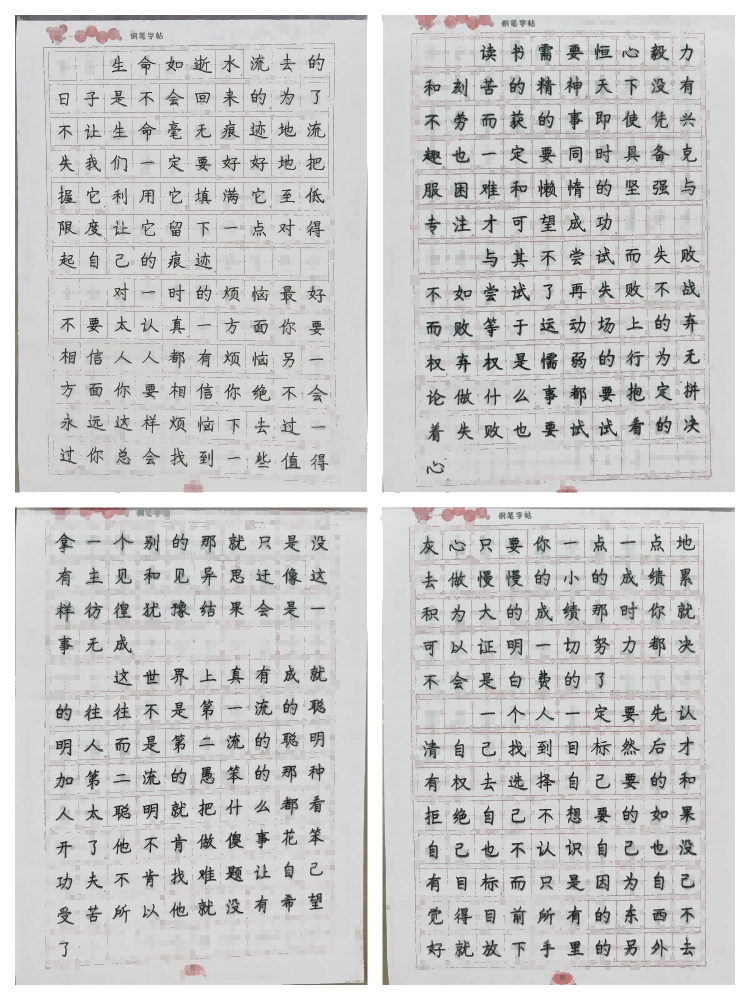 钢笔字帖
生命如逝水流去的
日子是不会回来的为了
不让生命毫无痕迹地流
失我们一定要好好地把
握它利用它填满它至低
限度让它留下一点对得
起自己的痕迹
对一时的烦恼最好
不要太认真一方面你要
相信人人都有烦恼另一
方面你要相信你绝不会
永远这样烦恼下去过一
过你总会找到一些值得
钢笔字帖
读书需要恒心毅力
和刻苦的精神天下没有
不劳而获的事即使凭兴
趣也一定要同时具备克
服困难和懒惰的坚强与
专注才可望成功
与其不尝试而失败
不如尝试了再失败不战
而败等于运动场上的弃
权弃权是懦弱的行为无
论做什么事都要抱定拼
着失败也要试试看的决
心
钢笔字帖
拿一个别的那就只是没
有主见和见异思迁像这
样彷徨犹豫结果会是一
事无成
这世界上真有成就
的往往不是第一流的聪
明人而是第二流的聪明
加第二流的愚笨的那种
人太聪明就把什么都看
开了他不肯做傻事花笨
功夫不肯找难题让自己
受苦所以他就没有希望
了
钢笔字帖
灰心只要你一点一点地
去做慢慢的小的成绩累
积为大的成绩那时你就
可以证明一切努力都决
不会是白费的了
一个人一定要先认
清自己找到目标然后才
有权去选择自己要的和
拒绝自己不想要的如果
自己也不认识自己也没
有目标而只是因为自己
觉得目前所有的东西不
好就放下手里的另外去